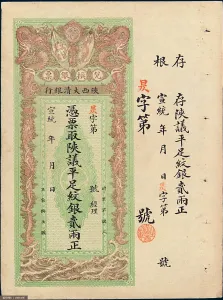 存根
存陝議平足紋銀貳兩正
宣統 年 月 日
字第 號
號
兌換銀票
陝西大清銀行
字第 號 經理
憑票取陝議平足紋銀貳兩正
宣統 年 月 日